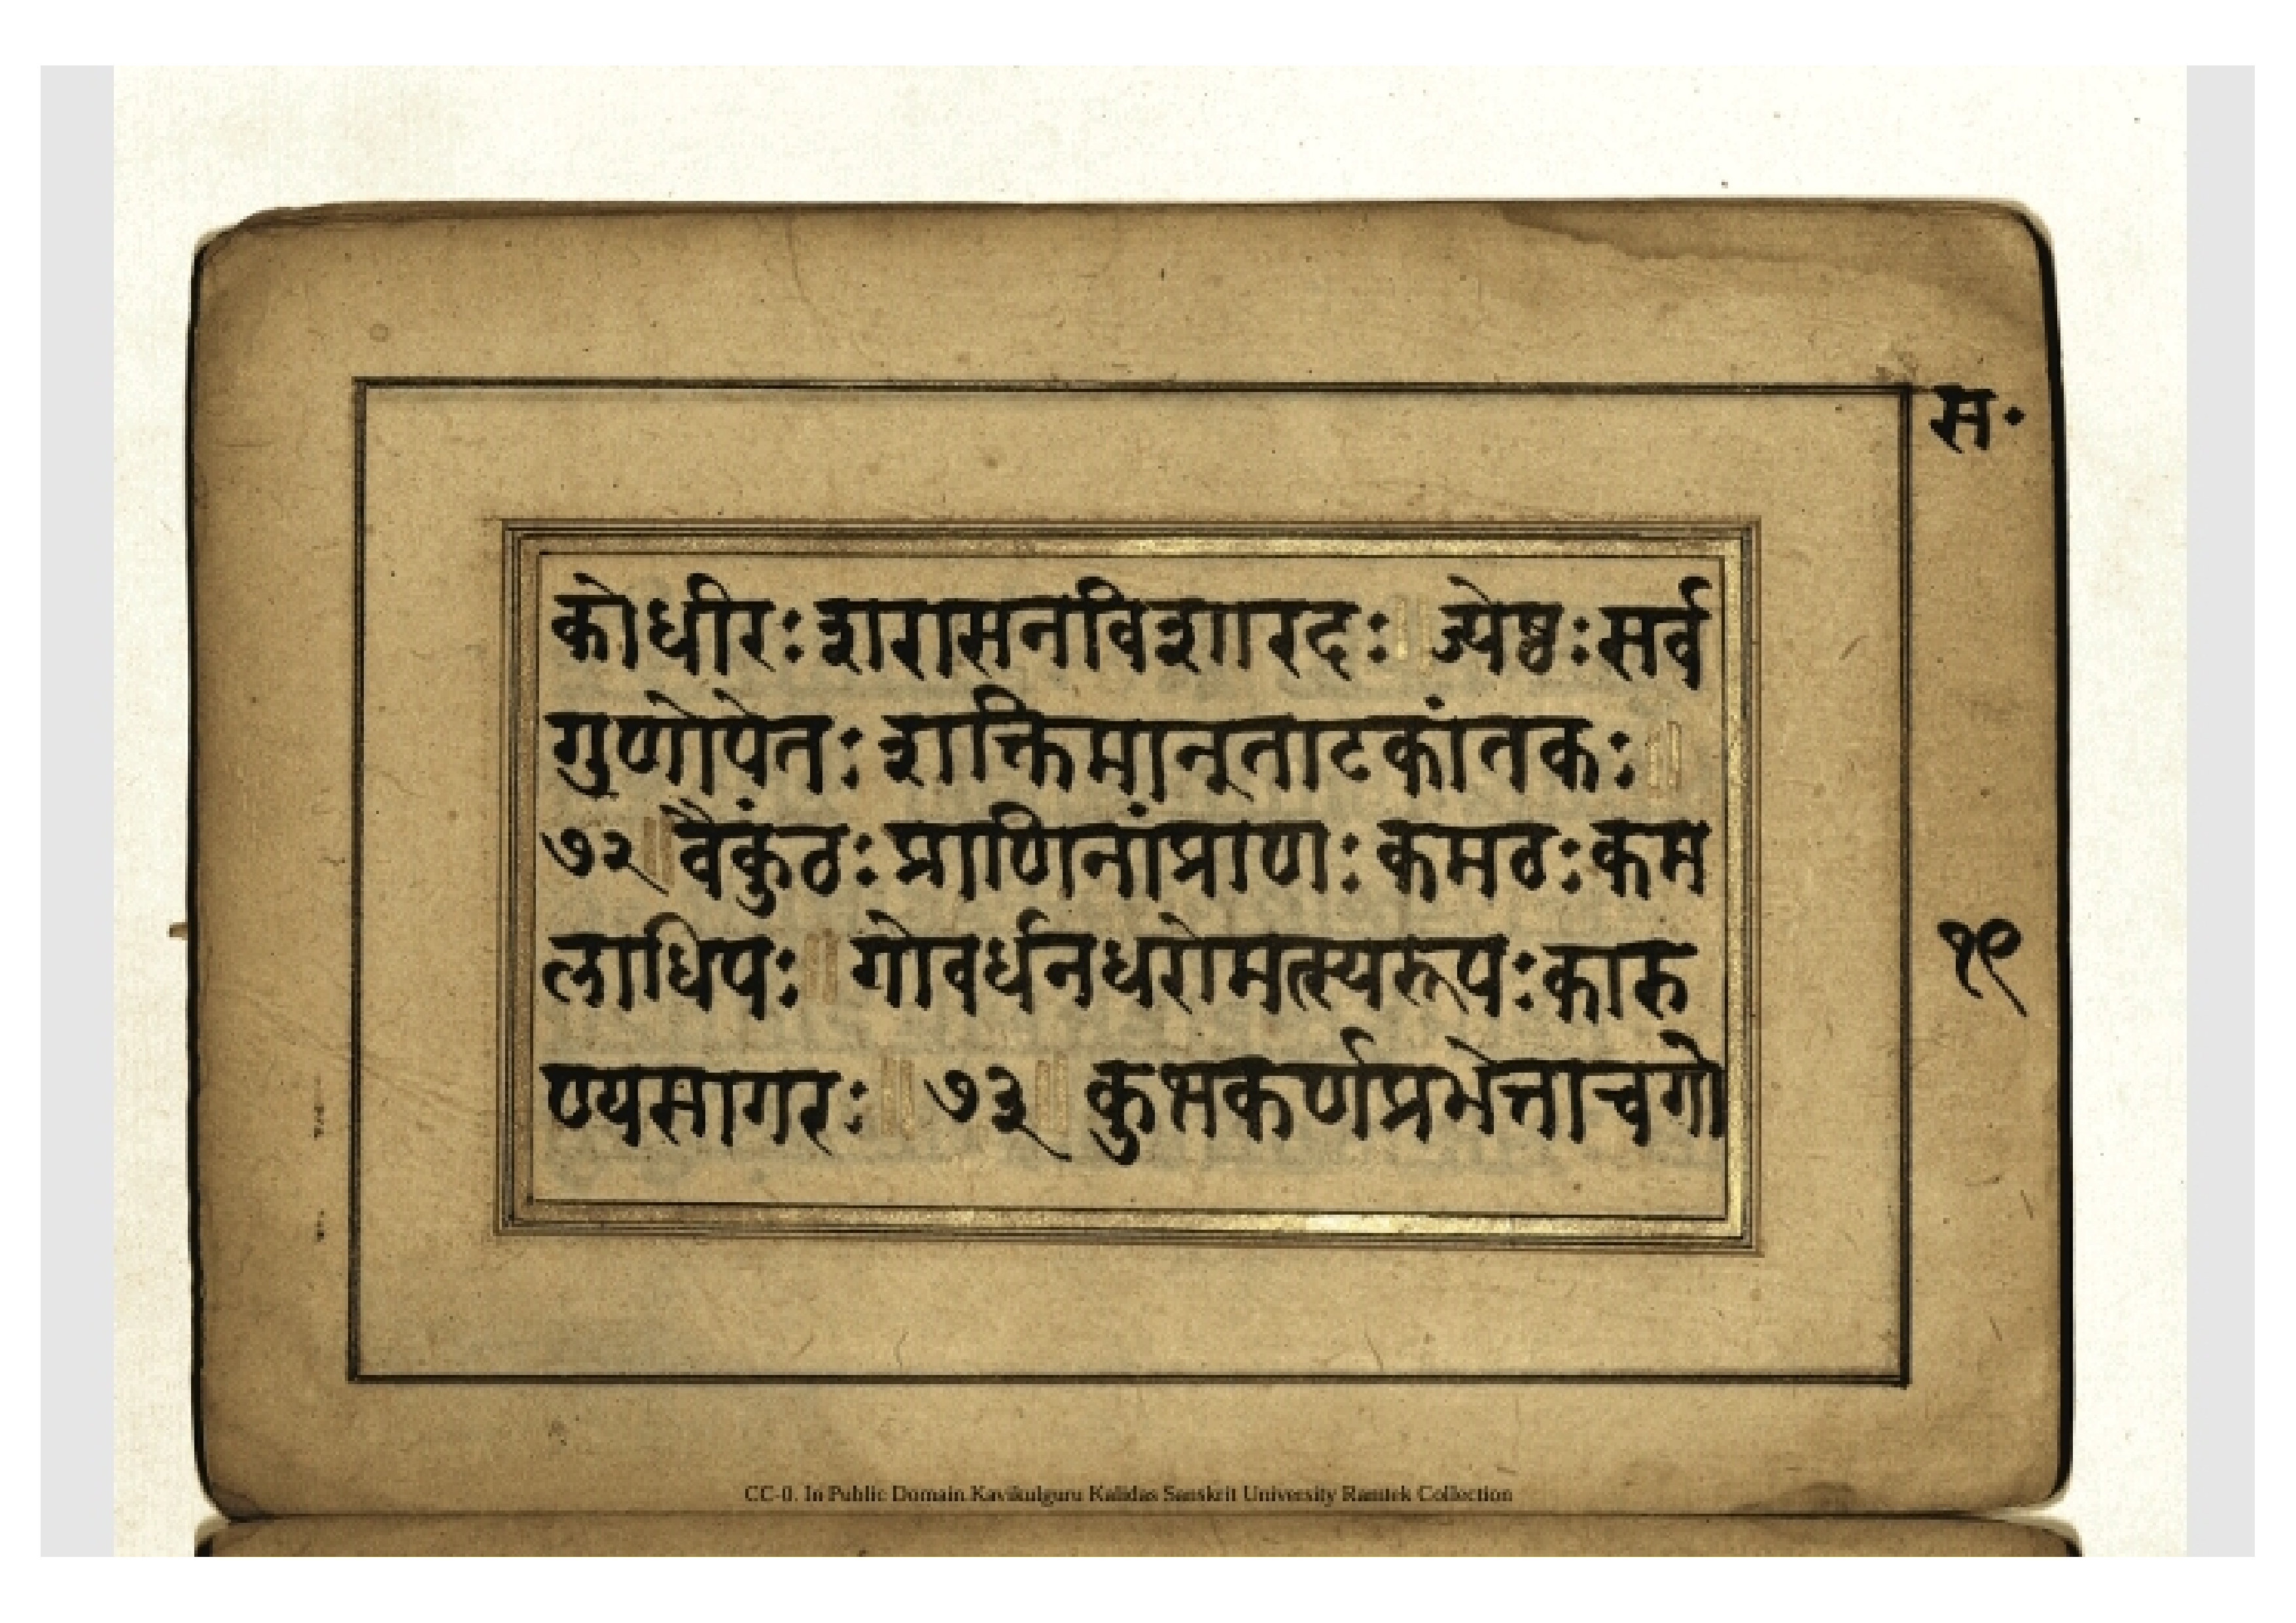 स॰
कोधीरः शरासनविशारदः ॥ ज्येष्ठः सर्व
गुणोपेतः शक्तिमान्ताटकांतकः ॥
७२ ॥ वैकुंठः प्राणिनांप्राणः कमठः कम
लाधिपः ॥ गोवर्धनधरोमत्स्यरूपः कारु
ण्यसागरः ॥ ७३ ॥ कुम्भकर्णप्रभेत्ताचगो
१९
CC-0. In Public Domain Kavikulguru Kalidas Sanskrit University Ramtek Collection